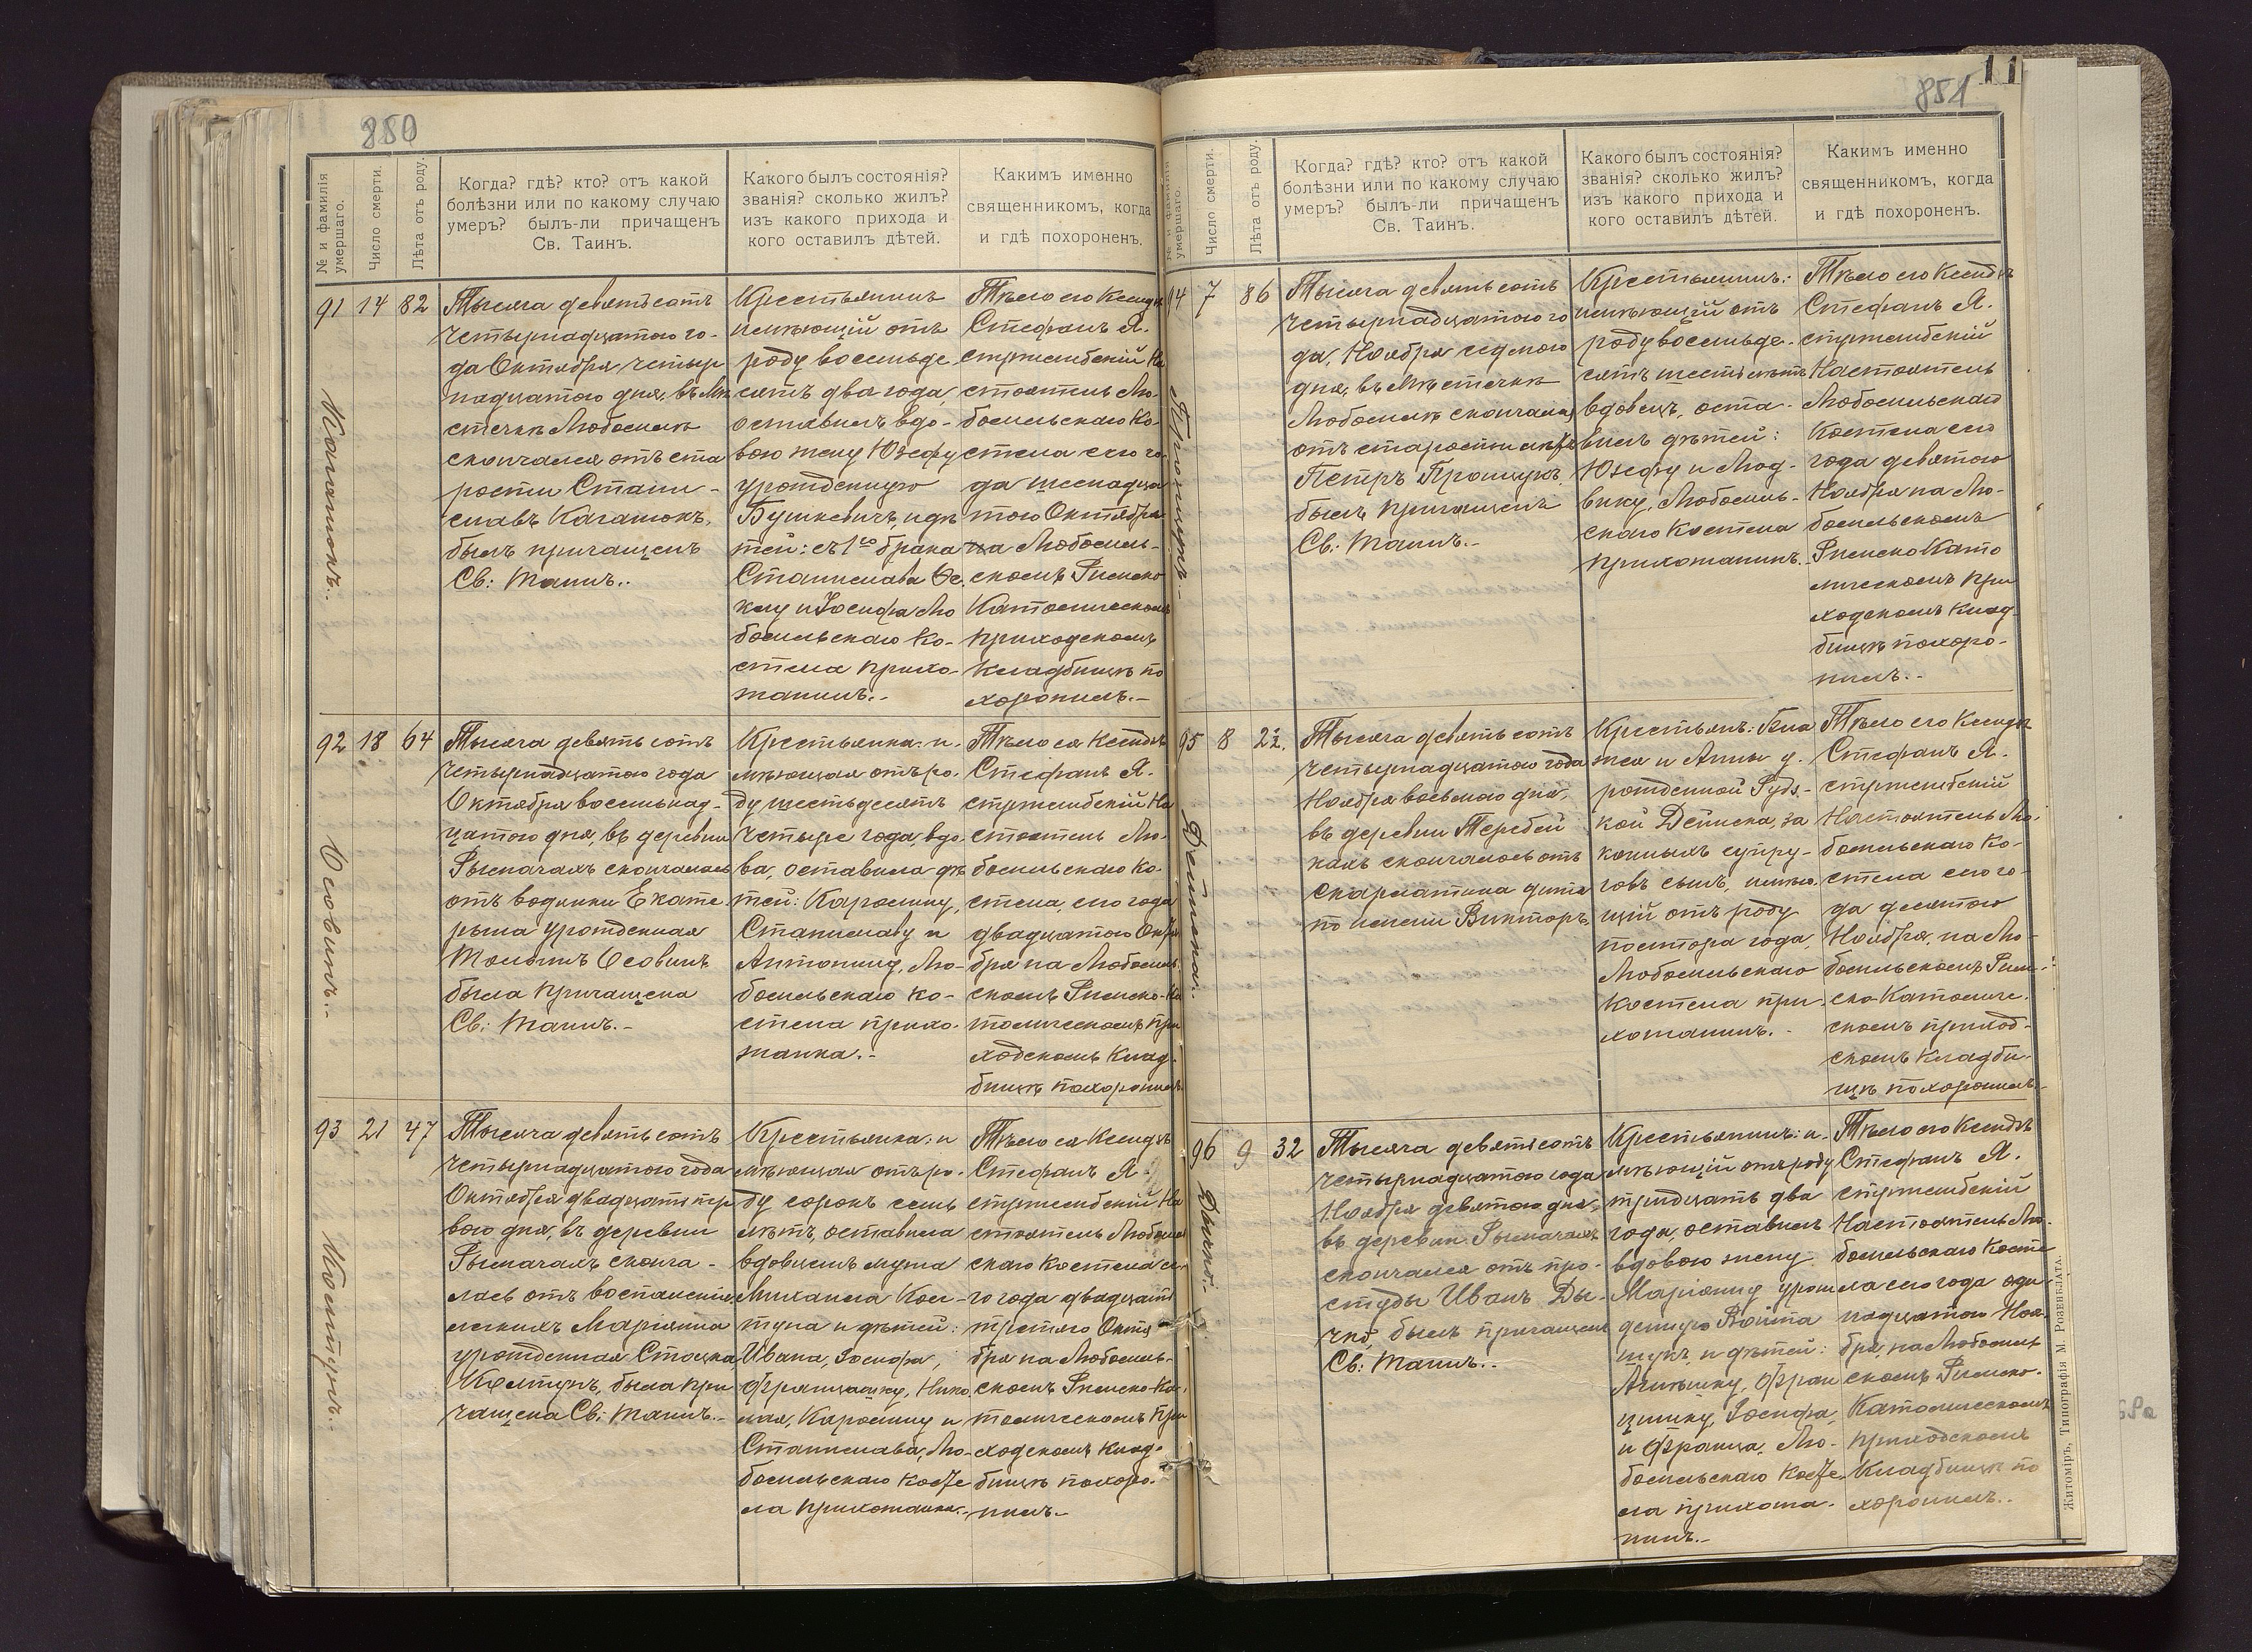 850
№ и фамилія умершаго.
Число смерти.
Лѣта отъ роду.
Когда? гдѣ? кто? отъ какой
болѣзни или по какому случаю
умеръ? былъ-ли причащенъ
Св. Таинъ.
Какого былъ состоянія?
званія? сколько жилъ?
изъ какого прихода и
кого оставилъ дѣтей.
Какимъ именно
священникомъ, когда
и гдѣ похороненъ.
91 14 82
Тысяча девятьсотъ
четырнадцатого го-
да Октября четыр
надцатого дня, въ Мѣ
стечкѣ Любомлѣ
скончался отъ ста
рости Стани-
славъ
былъ причащенъ
Св: Таинъ..
Крестьянинъ
имѣющій отъ
роду восемьде
сятъ два года,
оставилъ вдо-
вою жену Юзефу
урожденную
и дѣ
тей: съ 1го брака
Станислава
и Іосифа Лю
бомльскаго Ко-
стела прихо-
жанинъ.-
Тѣло его Ксендзъ
Стефанъ Я.
стржембскій На
стоятель Лю-
бомльскаго Ко-
стела сего го-
да шеснадца
того Октября
на Любомль-
скомъ Римско
Католическомъ
приходскомъ
кладбищѣ по
хоронилъ.-
92 18 64
Осовикъ.-
Тысяча девятьсотъ
четырнадцатого года
Октября восемьнад-
цатого дня, въ деревни
Рымачахъ скончалась
отъ водянки Екате
рына урожденная
Осовикъ
была причащена
Св: Таинъ.-
Крестьянка: и
мѣющая отъ ро-
ду шестьдесятъ
четыре года, вдо-
ва, оставила дѣ
тей: Каролину,
Станиславу и
Антонину, Лю-
бомльскаго Ко-
стела прихо-
жанка.-
Тѣло ея Ксендзъ
Стефанъ Я.
стржембскій На
стоятель Лю-
бомльскаго Ко-
стела, сего года
двадцатого Октя
бря на Любомль
скомъ Римско-Ка
толическомъ при
ходскомъ клад-
бищѣ похоронилъ.
93 21 47
Колтунъ.-
Тысяча девятьсотъ
четырнадцатого года
Октября двадцать пер
вого дня, въ деревни
Рымачахъ сконча-
лась отъ воспаленія
легкихъ Маріанна
урожденная Стоцка
Колтунъ, была при
чащена Св: Таинъ.-
Крестьянка: и
мѣющая отъ ро-
ду сорокъ семь
лѣтъ, оставила
вдовцемъ мужа
Михаила Кол-
туна и дѣтей:
Ивана, Іосифа,
Францишку, Нико
лая, Каролину и
Станислава, Лю-
бомльскаго косте
ла прихожанка.-
Тѣло ея Ксендзъ
Стефанъ Я
стржембскій На
стоятель Любомль
скаго Костела се-
го года двадцать
третяго Октя
бря на Любомль-
скомъ Римско-Ка-
толическомъ при
ходскомъ клад-
бищѣ похоро-
нилъ.-
851
11
№ и фамилія умершаго.
Число смерти.
Лѣта отъ роду.
Когда? гдѣ? кто? отъ какой
болѣзни или по какому случаю
умеръ? былъ-ли причащенъ
Св. Таинъ.
Какого былъ состоянія?
званія? сколько жилъ?
изъ какого прихода и
кого оставилъ дѣтей.
Какимъ именно
священникомъ, когда
и гдѣ похороненъ.
94 7 86
Прощукъ.-
Тысяча девятьсотъ
четырнадцатого го
да, Ноября седмого
дня, въ мѣстечкѣ
Любомлѣ скончался
отъ старости лѣтъ
Петръ Прощукъ,
былъ причащенъ
Св: Таинъ.-
Крестьянинъ:
имѣющій отъ
роду восемьде-
сятъ шесть лѣтъ
вдовецъ, оста-
вилъ дѣтей:
Юзефу и Люд-
вику, Любомль-
скаго Костела
прихожанинъ.-
Тѣло его Ксендзъ
Стефанъ Я.
стржембскій
Настоятель
Любомльскаго
Костела сего
года девятого
Ноября на Лю-
бомльскомъ
Римско Като
лическомъ при
ходскомъ клад-
бищѣ похоро-
нилъ.-
95 8 2½.
Дейнека.-
Тысяча девятьсотъ
четырнадцатого года
Ноября восьмого дня,
въ деревни Теребей
кахъ скончалось отъ
скарлатина дитя
по имени Викторъ,
Крестьянъ:
и Анны у-
рожденной
кой Дейнека, за
конныхъ супру-
говъ сынъ, имѣю
щій отъ роду
полтора года,
Любомльскаго
Костела при-
хожанинъ.-
Тѣло его Ксендзъ
Стефанъ Я.
стржембскій
Настоятель Лю-
бомльскаго Ко-
стела сего го-
да десятого
Ноября, на Лю-
бомльскомъ Рим-
ско-Католиче-
скомъ приход-
скомъ кладби-
щѣ похоронилъ.-
96 9 32
Тысяча девятьсотъ
четырнадцатого года
Ноября девятого дня,
въ деревни Рымачахъ
скончался отъ про-
студы Иванъ Ды-
былъ причащенъ
Св: Таинъ.-
Крестьянинъ: и-
мѣющій отъ роду
тридцать два
года, оставилъ
вдовою жену
Маріанну урож
денную Войта
и дѣтей:
Фран
цишку, Іосифа,
и Франца, Лю-
бомльскаго косте
ла прихожа-
нинъ.-
Тѣло его Ксендзъ
Стефанъ Я.
стржембскій
Настоятель Лю-
бомльскаго косте
ла сего года оди
надцатого Ноя-
бря, на Любомль
скомъ Римско-
Католическомъ
приходскомъ
Кладбищѣ по
хоронилъ..
Житоміръ, Типографія М. Розенблата.